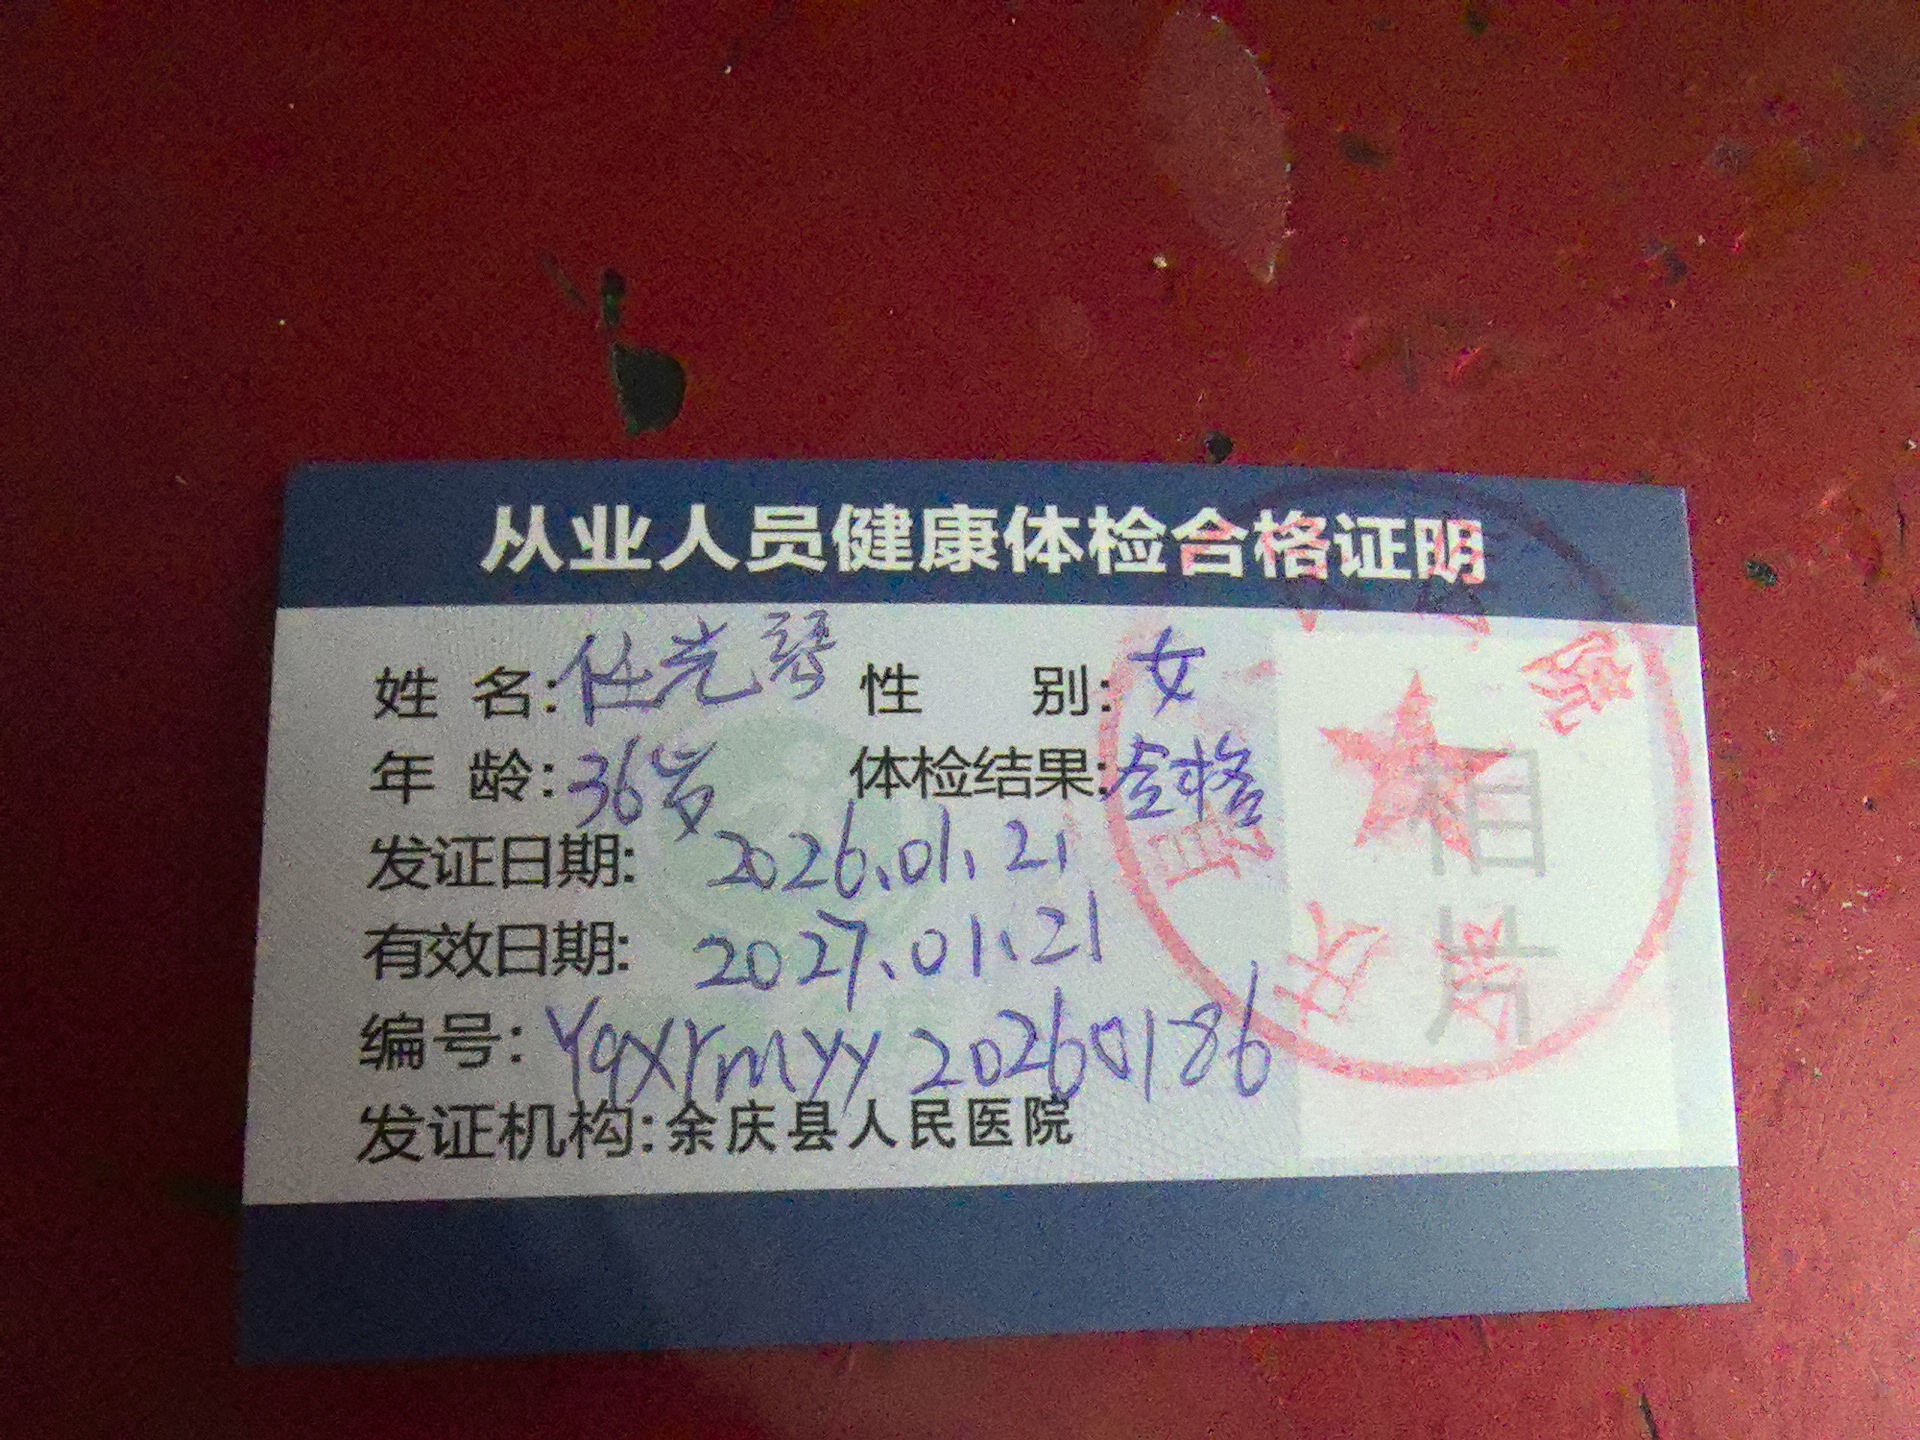 从业人员健康体检合格证明
姓 名: 任光琴 性 别: 女
年 龄: 36岁 体检结果: 合格
发证日期: 2026.01.21
有效日期: 2027.01.21
编号: Yqxrmyy 20260186
发证机构: 余庆县人民医院
相片